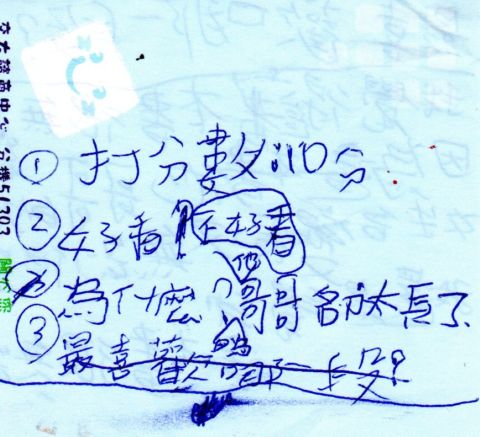 ① 打分數:110分
② 好看 不好看
為什麼?他哥哥 太長了
③ 最喜歡哪一段?
分機51303